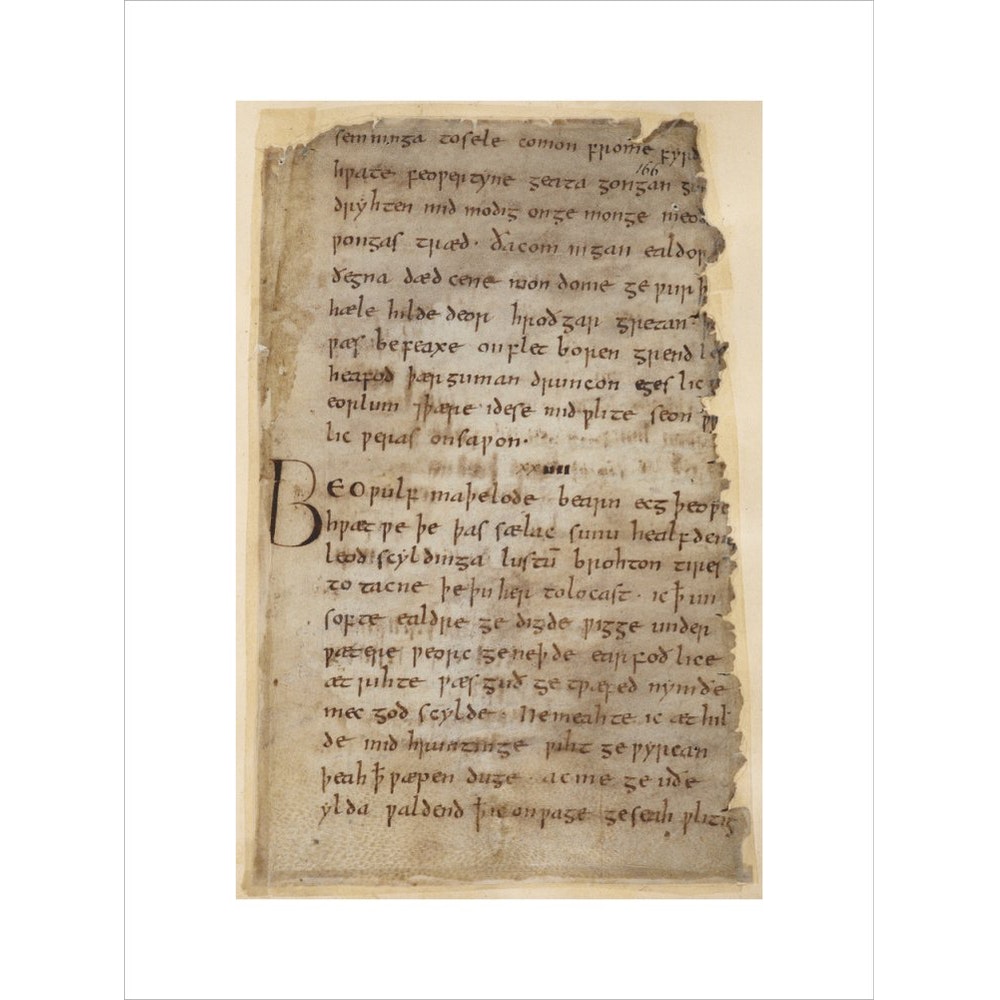 semninga tosele comon frome fyrd
166
hƿate feoƿertyne geata gongan
dryhten mid modig onge monge meo
ƿongas træd · ðacom ingan ealdor
ðegna dæd cene mon dome ge ƿurþ
hæle hilde deor hroðgar gretan ·
ƿæs befeaxe onflet boren grendl
heafod þærguman druncon egeslic
eorlum ⁊þære idese midƿlite seon
lic ƿeras onsaƿon ·
xxiiii
BEOƿulf maþelode bearn ecgþeoƿe
hƿæt ƿe þe þas sælac sunu healfdene
leod scyldinga lustū brohton tires
to tacne þeþuher tolocast · ic ꝥ un
softe ealdre ge digde ƿigge under
ƿætere ƿeorc geneþde earfoð lice
æt rihte ƿæs guð ge tƿæfed nymðe
mec god scylde · Nemeahte ic æt hil
de mid hruntinge ƿiht ge ƿyrcan
þeah ꝥ ƿæpen duge · ac me ge uðe
ylda ƿaldend ꝥic onƿage geseah ƿlitig